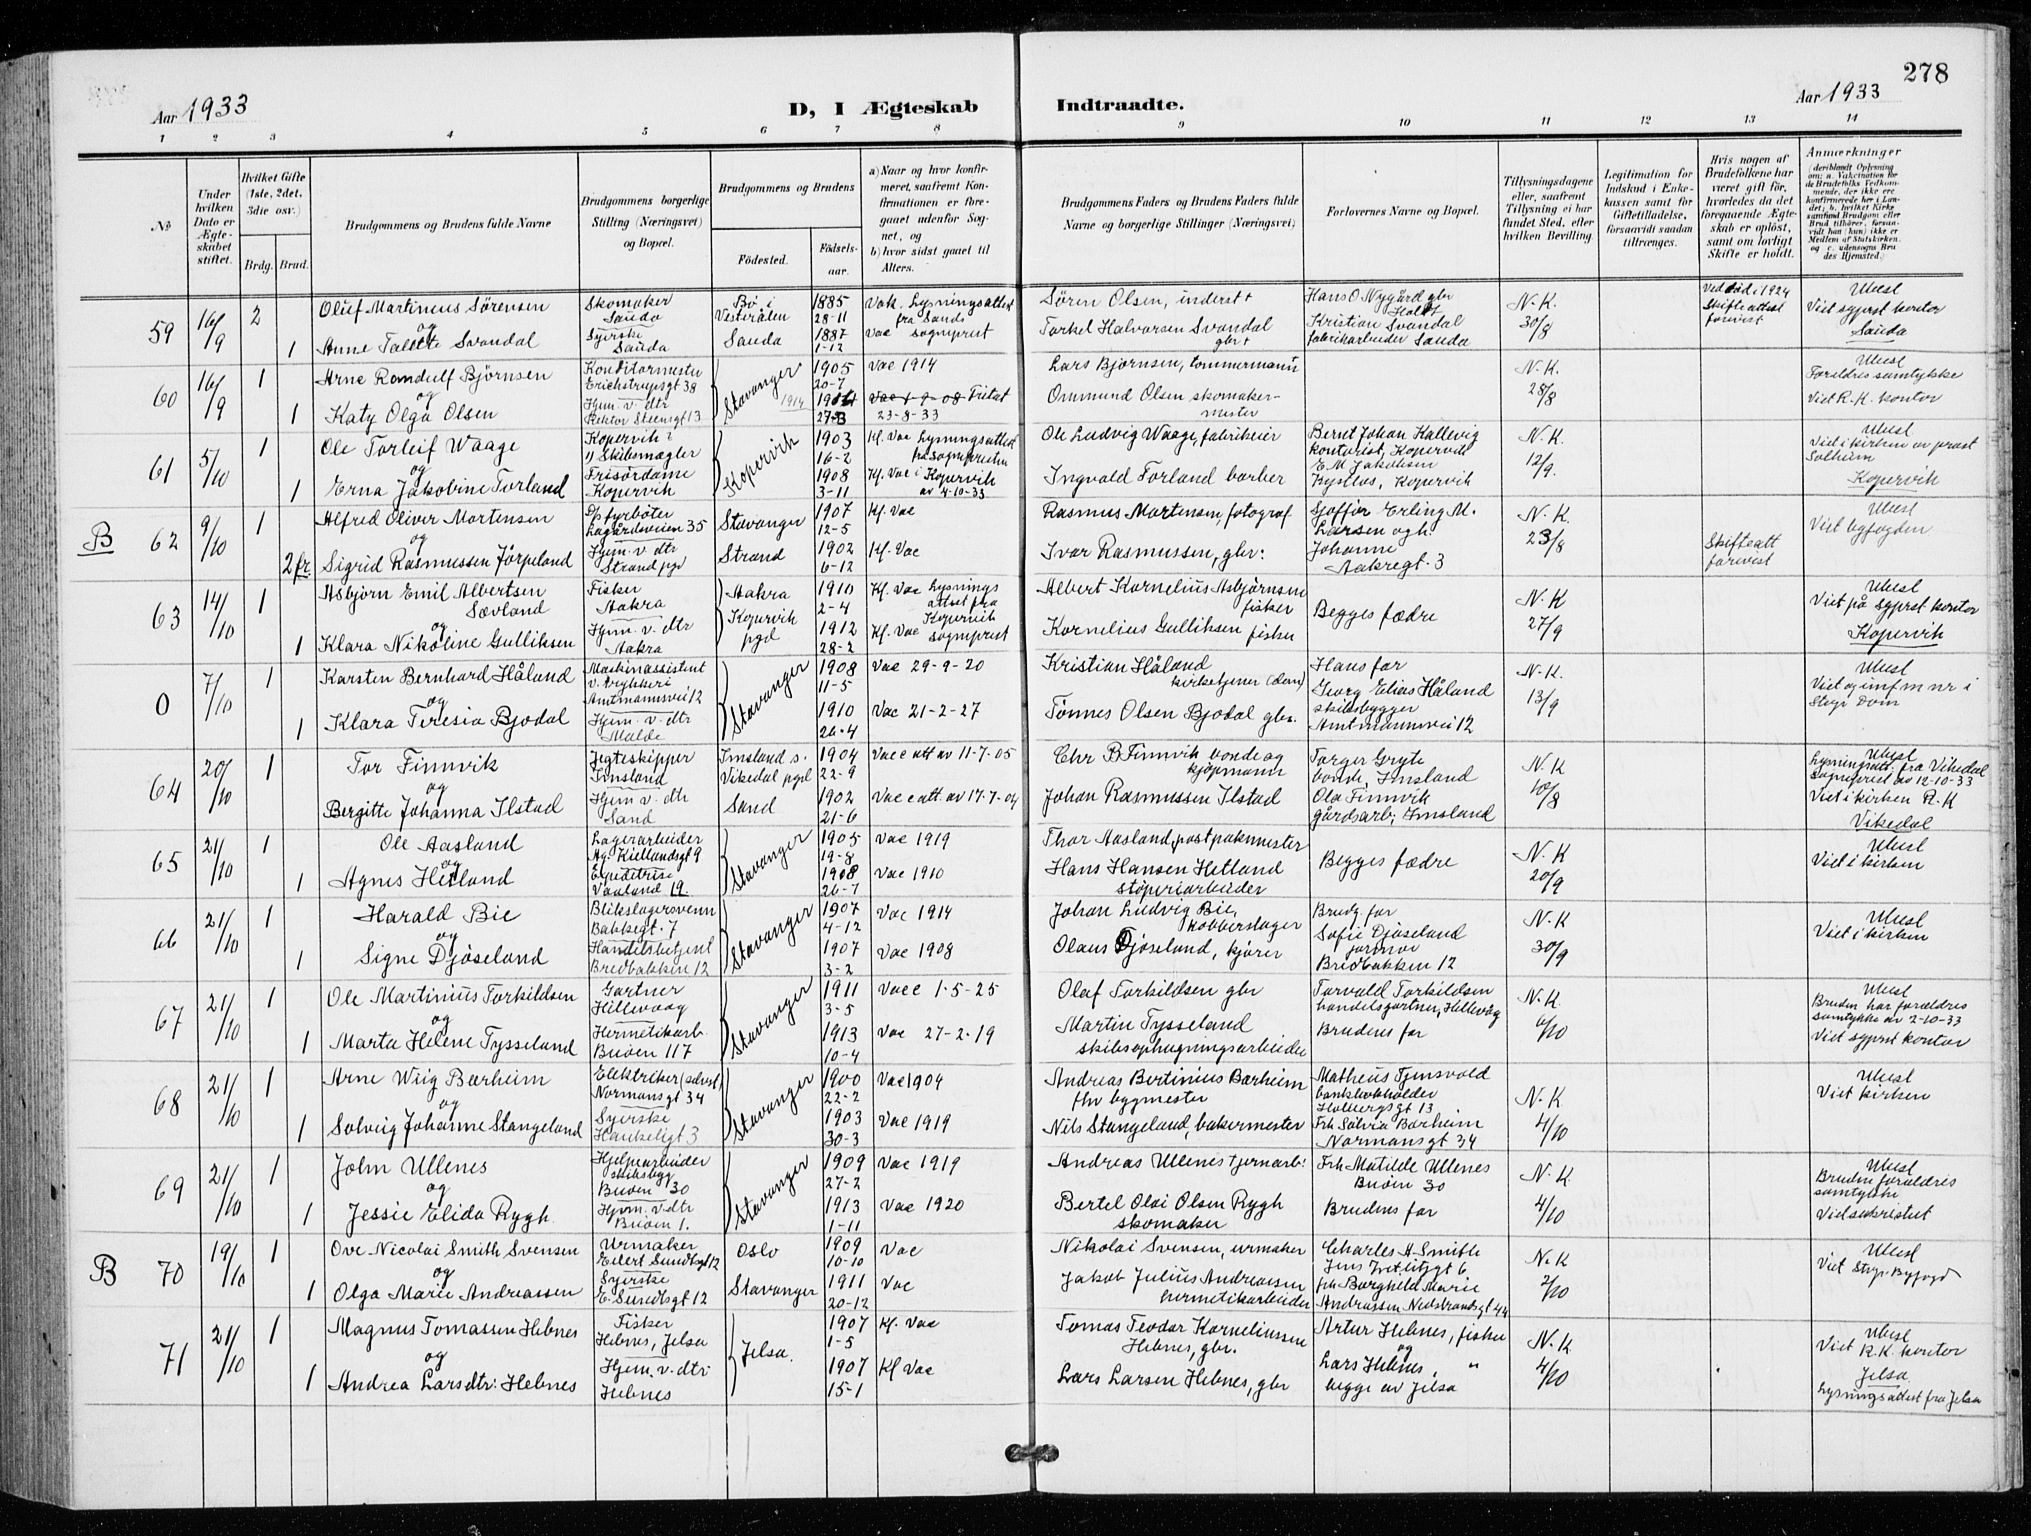 278
Aar 1933
D, I Ægteskab Indtraadte.
Aar 1933
1 2 3 4 5 6 7 8 9 10 11 12 13 14
№
Under hvilken Dato er Ægteskabet stiftet.
Hvilket Gifte (1ste, 2det, 3die osv.)
Brdg. Brud.
Brudgommens og Brudens fulde Navne
Brudgommens borgerlige Stilling (Næringsvei) og Bopæl.
Brudgommens og Brudens
Födested.
Födselsaar.
a) Naar og hvor konfirmeret, saafremt Konfirmationen er foregaaet udenfor Sognet, og
b) hvor sidst gaaet til Alters.
Brudgommens Faders og Brudens Faders fulde Navne og borgerlige Stillinger (Næringsvei)
Forlovernes Navne og Bopæl.
Tillysningsdagene eller, saafremt Tillysning ei har fundet Sted, efter hvilken Bevilling.
Legitimation for Indskud i Enkekassen samt for Giftetilladelse, forsaavidt saadan tiltrænges.
Hvis nogen af Brudefolkene har været gift för, hvorledes da det foregaaende Ægteskab er oplöst, samt om lovligt Skifte er holdt.
Anmærkninger
(deriblandt Oplysning om: a. Vakcination for de Brudefolks Vedkommende, der ikke ere konfirmerede her i Landet; b. hvilket Kirkesamfund Brudgom eller Brud tilhörer, forsaavidt han (hun) ikke er Medlem af Statskirken, og c. udensogns Brudes Hjemsted.)
59 16/9 2 Oluf Martinius Sörensen Skomaker Sauda Bö i Vesterålen 1885 28-11 Vak. Lysningsattest fra Sauda sogneprest Sören Olsen, inderst + Hans O. Nygård gbr N.K. 30/8 Ved död i 1924 Skifteattest forevist Ubesl Viet sgprst kontor Sauda
og
1 Anne Talette Svandal Syerske Sauda Sauda 1887 1-12 Vac Torkel Halvorsen Svandal gbr + Kristian Svandal fabrikarbeider Sauda
60 16/9 1 Arne Randulf Björnsen Konditormester Erichstrupsgt 38 Stavanger 1905 20-7 Vac 1914 Lars Björnsen, tömmermann N.K. 28/8 Ubesl Foreldres samtykke Viet R.K. kontor
og
1 Katy Olga Olsen Hjem. v. dtr Rektor Steensgt 13 1914 23-8-33 Ommund Olsen skomakermester
61 5/10 1 Ole Torleif Waage Kopervik Skibsmægler Kopervik 1903 16-2 Kf. Vac Lysningsattest fra sognepresten i Kopervik av 4-10-33 Ole Ludvig Waage, fabrikeier Bernt Johan Kallevig kontorist, Kopervik N.K. 12/9. Ubesl Viet i kirken av prost Solheim Kopervik
og
1 Erna Jakobine Torland Frisördame Kopervik 1908 3-11 Kf. Vac Ingvald Torland barber E.M. Jakobsen Kopervik
B 62 9/10 1 Alfred Oliver Mortensen fyrböter Lagårdsveien 35 Stavanger 1907 12-5 Kf. Vac Rasmus Mortensen, fotograf Sjofför Erling M. Larsen og h. N.K. 23/8 Skifteatt forevist Ubesl Viet byfogden
og
2 fr. Sigrid Rasmussen Jörpeland Hjem. v. dtr Strand pgd Strand 1902 6-12 Kf. Vac Ivar Rasmussen, gbr: Johanne Aakregt. 3
63 14/10 1 Asbjörn Emil Albertsen Sævland Fisker Aakra Aakra 1910 2-4 Kf. Vac Lysningsattest fra Kopervik sogneprest Albert Kornelius Asbjörnsen fisker Begges fædre N.K 27/9 Ubesl Viet på sgprst kontor Kopervik
og
1 Klara Nikoline Gulliksen Hjem. v. dtr Aakra Kopervik pgd 1912 28-2 Kf. Vac Kornelius Gulliksen fisker
0 7/10 1 Karsten Bernhard Håland v. trykkeri Amtmannsvei 12 Stavanger 1908 11-5 Vac 29-9-20 Kristian Håland kirketjener (Dom) Hans far Georg Elias Håland skibsbygger Amtmannsvei 12 N.K. 13/9 Ubesl Viet og innf m nr i Stvgr Dom
og
1 Klara Teresia Bjodal Hjem. v. dtr Malde 1910 26-4 Vac 21-2-27 Tönnes Olsen Bjodal gbr.
64 20/10 1 Tor Finnvik Jegteskipper Imsland Imsland s. Vikedal pgd 1904 22-9 Vacc att av 11-7-05 Chr B Finnvik bonde og kjöpmann Torger Gryte bonde, Imsland N.K 10/8 Ubesl Lysningsatt. fra Vikedal Sogneprest av 12-10-33 Viet i kirken R.K Vikedal
og
1 Bergitte Johanna Ilstad Hjem v. dtr Sand Sand 1902 21-6 Vacc att. av 17-7-04 Johan Rasmussen Ilstad Ola Finnvik gårdsarb, Imsland
65 21/10 1 Ole Aasland Lagerarbeider Ag. Kiellandsgt 9 Stavanger 1905 19-8 Vac 1919 Thor Aasland, postpakmester Begges fædre N.K 20/9 Ubesl Viet i kirken
og
1 Agnes Hetland Expeditrise Vaaland 19. 1908 26-7 Vac 1910 Hans Hansen Hetland stöperiarbeider
66 21/10 1 Harald Bie Blikslagersvenn Bakkegt. 7 Stavanger 1907 4-12 Vac 1914 Johan Ludvig Bie, kobberslager Brudg. far N.K 30/9 Ubesl Viet i kirken
og
1 Signe Djöseland Handelsbetjent Bredbakken 12 1907 3-2 Vac 1908 Olaus Djöseland, kjörer Sofie Djöseland jormor Bredbakken 12
67 21/10 1 Ole Martinius Torkildsen Gartner Hillevaag Stavanger 1911 3-5 Vacc 1-5-25 Olaf Torkildsen gbr Torvald Torkildsen handelsgartner, Hillevåg N.K. 6/10 Ubesl Bruden har foreldres samtykke av 2-10-33 Viet sgprst kontor
og
1 Marta Helene Tysseland Hermetikarb. Buöen 117 1913 10-4 Vac 27-2-19 Martin Tysseland skibsophugningsarbeider Brudens far
68 21/10 1 Arne Wiig Bærheim Elektriker (selvst) Normansgt 34 Stavanger 1900 22-2 Vac 1904 Andreas Bertinius Bærheim fhv bygmester Matheus Tjensvold bankbokholder Holbergsgt 13 N.K 4/10 Ubesl Viet kirken
og
1 Solveig Johanne Stangeland Syerske Haukeligt 3 1903 30-3 Vac 1919 Nils Stangeland, bakermester Frk Solvia Bærheim Normansgt 34
69 21/10 1 John Ullenes Hjelpearbeider skibsbygg Buöen 30 Stavanger 1909 27-2 Vac 1919 Andreas Ullenes Frk Matilde Ullenes Buöen 30 N.K. 4/10 Ubesl Bruden foreldres samtykke Viet sakristiet
og
1 Jessie Elida Rygh. Hjem. v. dtr Buöen 1. 1913 1-11 Vac 1920 Bertel Olai Olsen Rygh skomaker Brudens far
B 70 19/10 1 Ove Nicolai Smith Svensen Urmaker Eilert Sundtsgt 12 Oslo 1909 10-10 Vac Nikolai Svensen, urmaker Charles A Smith N.K 2/10 Ubesl Viet Stvgr Byfogd
og
1 Olga Marie Andreassen Syerske E. Sundtsgt 12 Stavanger 1911 20-12 Vac Jakob Julius Andreassen hermetikarbeider frk Borghild Marie Andreassen Nedstrandsgt 44
71 21/10 1 Magnus Tomassen Hebnes Fisker Hebnes, Jelsa Jelsa. 1907 1-5 Kf. Vac Tomas Teodor Korneliussen Hebnes, gbr. Artur Hebnes, fisker og N.K 4/10 Ubesl Viet R.K. kontor Jelsa
og
1 Andrea Larsdtr: Hebnes Hjem. v. dtr. Hebnes 1907 15-1 Kf Vac Lars Larsen Hebnes, gbr Lars Hebnes " begge av Jelsa Lysningsattest fra Jelsa